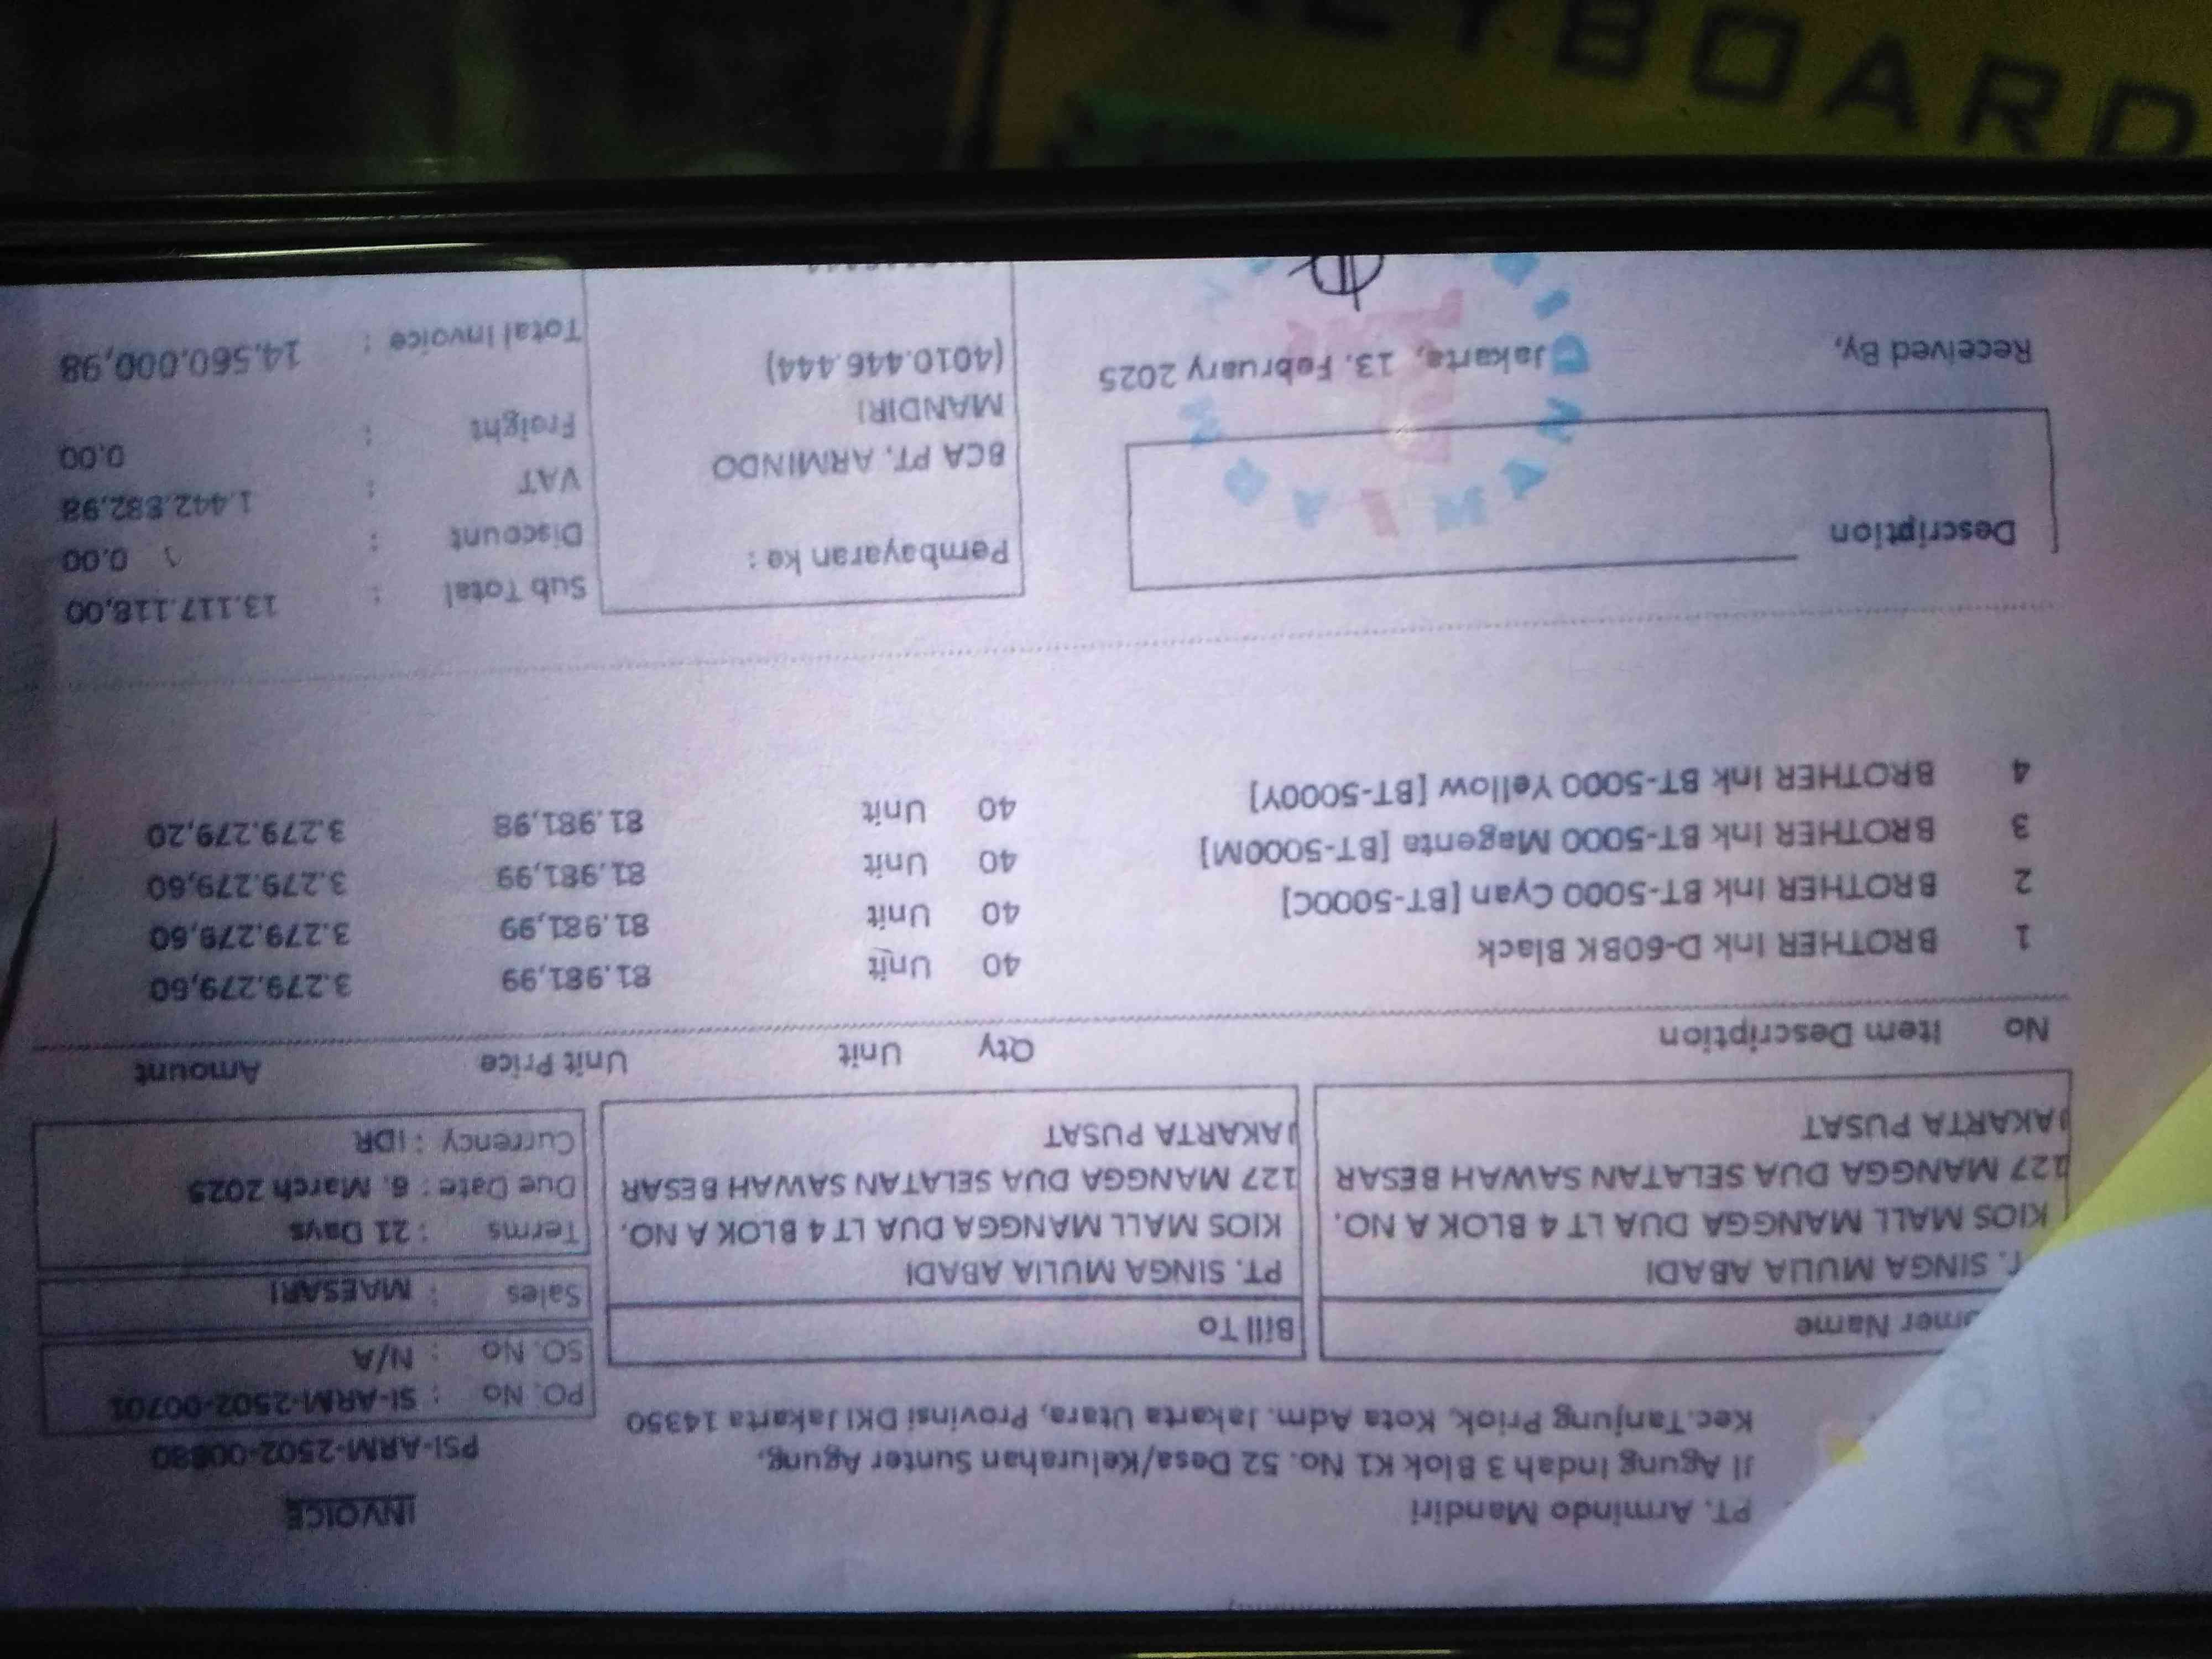 PT. Armindo Mandiri
Jl Agung Indah 3 Blok K1 No. 52 Desa/Kelurahan Sunter Agung,
Kec.Tanjung Priok, Kota Adm. Jakarta Utara, Provinsi DKI Jakarta 14350
INVOICE
PSI-ARM-2502-00880
PO. No : SI-ARM-2502-00701
SO. No : N/A
Sales : MAESARI
Terms : 21 Days
Due Date : 6. March 2025
Currency : IDR
omer Name
T. SINGA MULIA ABADI
KIOS MALL MANGGA DUA LT 4 BLOK A NO.
127 MANGGA DUA SELATAN SAWAH BESAR
JAKARTA PUSAT
Bill To
PT. SINGA MULIA ABADI
KIOS MALL MANGGA DUA LT 4 BLOK A NO.
127 MANGGA DUA SELATAN SAWAH BESAR
JAKARTA PUSAT
No Item Description Qty Unit Unit Price Amount
1 BROTHER Ink D-60BK Black 40 Unit 81.981,99 3.279.279,60
2 BROTHER Ink BT-5000 Cyan [BT-5000C] 40 Unit 81.981,99 3.279.279,60
3 BROTHER Ink BT-5000 Magenta [BT-5000M] 40 Unit 81.981,99 3.279.279,60
4 BROTHER Ink BT-5000 Yellow [BT-5000Y] 40 Unit 81.981,98 3.279.279,20
Description
Received By,
Jakarta, 13. February 2025
Pembayaran ke :
BCA PT. ARMINDO
MANDIRI
(4010.446.444)
Sub Total : 13.117.118,00
Discount : 0,00
VAT : 1.442.882,98
Freight : 0,00
Total Invoice : 14.560.000,98
KEYBOARD